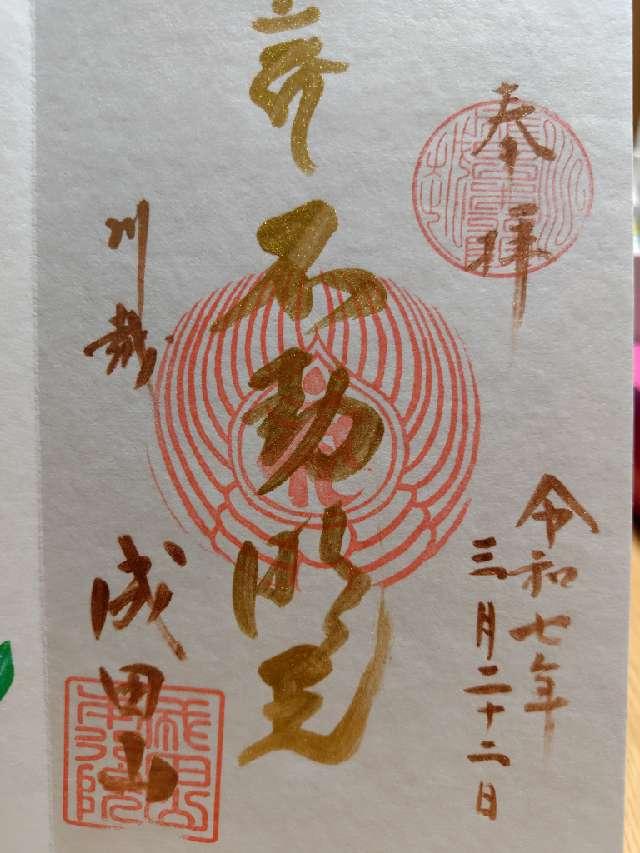 奉拝
令和七年
三月二十二日
不動明王
川越
成田山